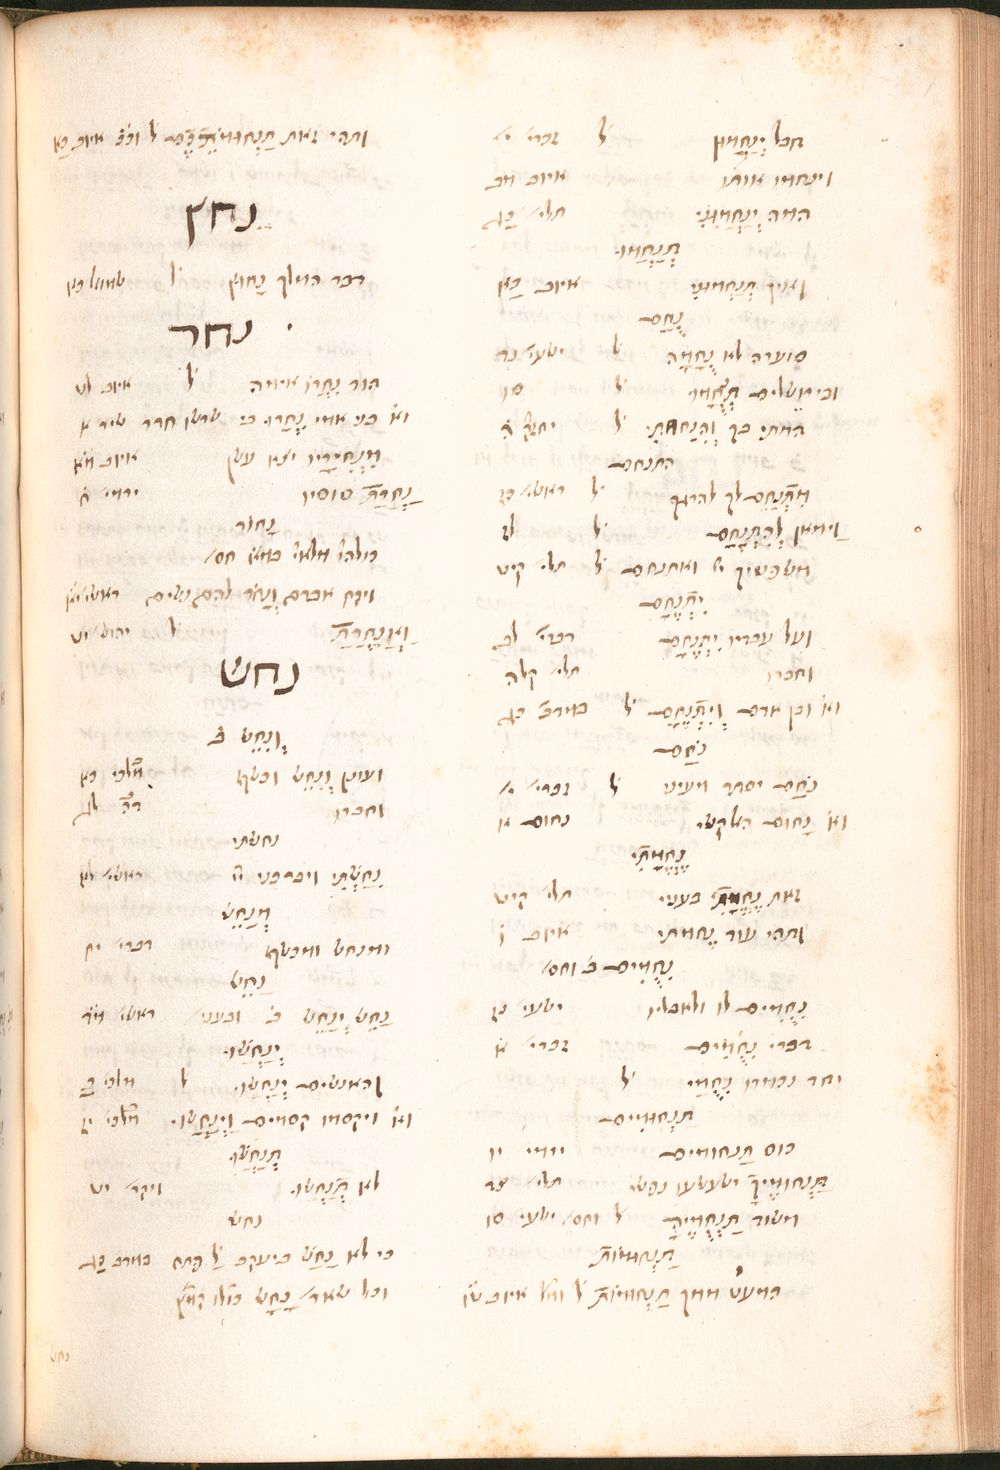 הבל יְנַחֵמוּן ל֯ זכרי׳ י׳
וינחמו אותו איוב מב
המה יְנַחֲמֻנִי תלי׳ כג
תְנַחֲמוּ
ואיך תְנַחֲמוּנִי איוב כא
נֻחָם
סוערה לא נֻחָמָה ל֯ ישעי׳ נד
ובירושלים תְנֻחָמוּ ל֯ סו
חמתי בך וְהִנֶחָמְתִי ל֯ יחזק׳ ה֯
התנחם
מִתְנַחֵם לך להרגך ל֯ ראשי׳ כז
וימאן לְהִתְנַחֵם ל֯ לז
משפטיך יי ואתנחם ל֯ תלי׳ קיט
יִתְנֶחָם
ועל עבדיו יִתְנֶחָם דברי׳ לב
וחברו תלי׳ קלה
וא֯ ובן אדם וְיִתְנֶחָם ל֯ במדב׳ כג
נֹחַם
נֹחַם יסתר מעיני ל֯
וא֯ נַחוּם האלקשי נחום א
נֶחָמָתִי
זאת נֶחָמָתִי בעניי תלי׳ קיט
ותהי עוד נֶחָמָתִי איוב ו֯
נִחֻמִים ב֯ וחס׳
נִחֻמִים לו ולאבליו ישעי׳ נז
דברי נִחֻמִים זכרי׳ א֯
יחד נכמרו נִחוּמָי ל֯
תַנְחוּמִים
כוס תַנחומים ירמי׳ יו
תַנְחוּמֶיךָ ישעשעו נפשי תלי׳ צד
משוד תַנְחֻמֶיהָ ל֯ וחס׳ ישעי׳ סו
תַנְחוּמוֹת
המעט ממך תַנְחוּמוֹת ל֯ ומל׳ איוב ט֯ו
ותהי זאת תַנְחוּמֹתֵיכֶם ל֯ וכ֯ב֯ איוב כא
נחץ
דבר המלך נָחוּץ ל֯ שמואל כא
נחר
הוד נַחְרוֹ אימה ל֯ איוב לט
וא֯ בני אמי נִחֲרוּ בי שרשו חרר שיר א
מִנְחִירָיו יצא עשן איוב מא֯
נַחְרַת סוסיו ירמי׳ ח֯
נָחוֹר
כולהו֯ מלאי֯ במא֯ חס׳
ויקח אברם וְנָחֹר להם נשים ראשי׳ יא֯
וַאֲנָחֲרַת ל֯ יהוש׳ יט
נחש
וְנִחֵשׁ ב֯
ועונן וְנִחֵשׁ וכשף מלכי׳ כא
וחברו ד֯ה֯ לג
נחשתי
נִחַשְׁתִי ויברכני יי ראשי׳ ל֯
מְנַחֵשׁ
ומנחש ומכשף דברי׳ יח
נַחֵשׁ
נַחֵשׁ יְנַחֵשׁ ב֯ ובעני׳ ראשי׳ מ֯ד
יְנַחֲשׁוּ
והאנשים יְנַחֲשׁוּ ל֯ מלכי׳ כ
וא֯ ויקסמו קסמים וַיְנַחֵשׁוּ מלכי׳ יז
תְנַחֲשׁוּ
לא תְנַחֲשׁוּ ויקר׳ יט
נחש
כי לא נַחַשׁ ביעקב ל֯ פתח במדב כג
וכל שאר׳ נָחָשׁ כולו קמץ
נחש